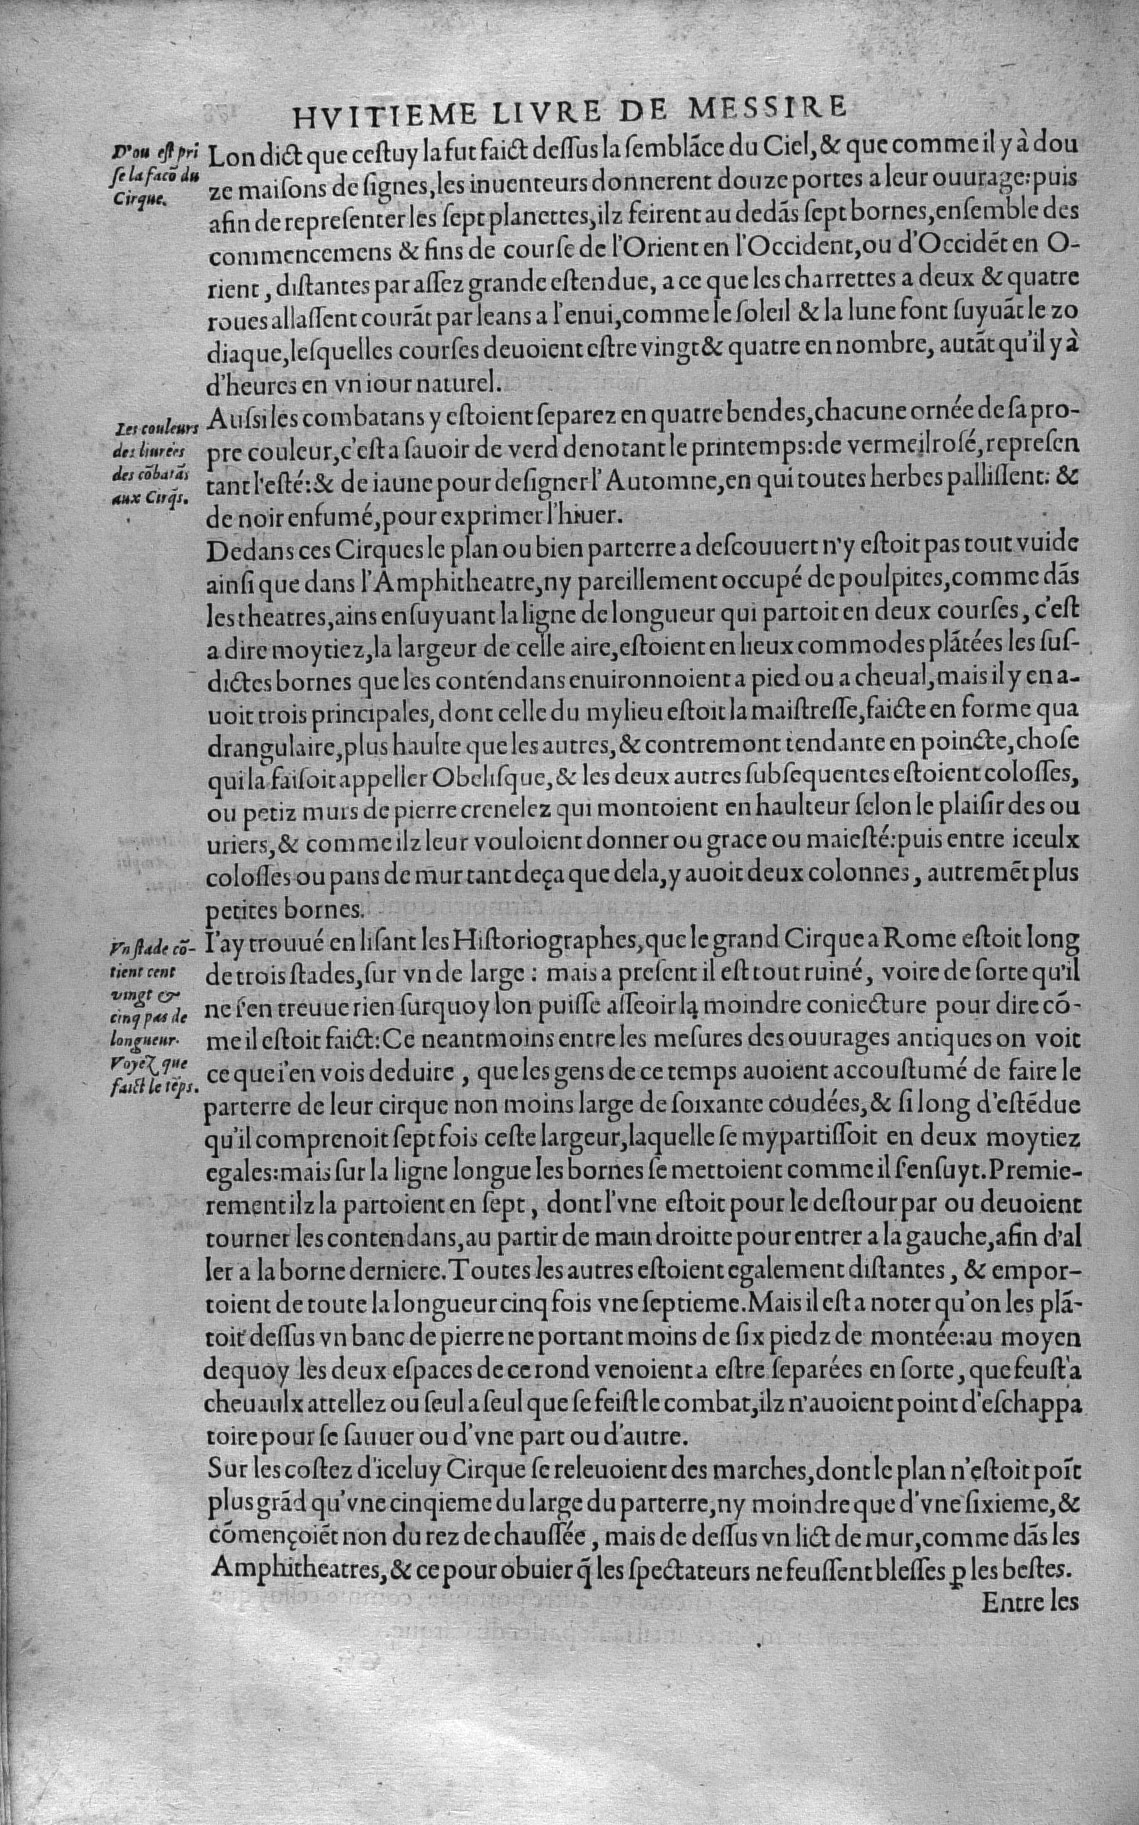 HVITIEME LIVRE DE MESSIRE
D'ou est pri
se la facō du
Cirque.
Lon dict que cestuy la fut faict dessus la semblāce du Ciel, & que comme il y à dou
ze maisons de signes, les inuenteurs donnerent douze portes a leur ouurage: puis
afin de representer les sept planettes, ilz feirent au dedās sept bornes, ensemble des
commencemens & fins de course de l'Orient en l'Occident, ou d'Occidēt en O-
rient, distantes par assez grande estendue, a ce que les charrettes a deux & quatre
roues allassent courāt par leans a l'enui, comme le soleil & la lune font suyuāt le zo
diaque, lesquelles courses deuoient estre vingt & quatre en nombre, autāt qu'il y à
d'heures en vn iour naturel.
Les couleurs
des liurées
des cōbatās
aux Cirq̄s.
Aussi les combatans y estoient separez en quatre bendes, chacune ornée de sa pro-
pre couleur, c'est a sauoir de verd denotant le printemps: de vermeil rosé, represen
tant l'esté: & de iaune pour designer l'Automne, en qui toutes herbes pallissent: &
de noir enfumé, pour exprimer l'hiuer.
Dedans ces Cirques le plan ou bien parterre a descouuert n'y estoit pas tout vuide
ainsi que dans l'Amphitheatre, ny pareillement occupé de poulpites, comme dās
les theatres, ains ensuyuant la ligne de longueur qui partoit en deux courses, c'est
a dire moytiez, la largeur de celle aire, estoient en lieux commodes plātées les sus-
dictes bornes que les contendans enuironnoient a pied ou a cheual, mais il y en a-
uoit trois principales, dont celle du mylieu estoit la maistresse, faicte en forme qua
drangulaire, plus haulte que les autres, & contremont tendante en poincte, chose
qui la faisoit appeller Obelisque, & les deux autres subsequentes estoient colosses,
ou petiz murs de pierre crenelez qui montoient en haulteur selon le plaisir des ou
uriers, & comme ilz leur vouloient donner ou grace ou maiesté: puis entre iceulx
colosses ou pans de mur tant deça que dela, y auoit deux colonnes, autremēt plus
petites bornes.
Vn stade cō-
tient cent
vingt &
cinq pas de
longueur.
Voyez que
faict le tēps.
I'ay trouué en lisant les Historiographes, que le grand Cirque a Rome estoit long
de trois stades, sur vn de large: mais a present il est tout ruiné, voire de sorte qu'il
ne s'en treuue rien surquoy lon puisse asseoir la moindre coniecture pour dire cō-
me il estoit faict: Ce neantmoins entre les mesures des ouurages antiques on voit
ce que i'en vois deduire, que les gens de ce temps auoient accoustumé de faire le
parterre de leur cirque non moins large de soixante coudées, & si long d'estēdue
qu'il comprenoit sept fois ceste largeur, laquelle se mypartissoit en deux moytiez
egales: mais sur la ligne longue les bornes se mettoient comme il s'ensuyt. Premie-
rement ilz la partoient en sept, dont l'vne estoit pour le destour par ou deuoient
tourner les contendans, au partir de main droitte pour entrer a la gauche, afin d'al
ler a la borne derniere. Toutes les autres estoient egalement distantes, & empor-
toient de toute la longueur cinq fois vne septieme. Mais il est a noter qu'on les plā-
toit dessus vn banc de pierre ne portant moins de six piedz de montée: au moyen
dequoy les deux espaces de ce rond venoient a estre separées en sorte, que feust a
cheuaulx attellez ou seul a seul que se feist le combat, ilz n'auoient point d'eschappa
toire pour se sauuer ou d'vne part ou d'autre.
Sur les costez d'iceluy Cirque se releuoient des marches, dont le plan n'estoit poīt
plus grād qu'vne cinqieme du large du parterre, ny moindre que d'vne sixieme, &
cōmençoiēt non du rez de chaussée, mais de dessus vn lict de mur, comme dās les
Amphitheatres, & ce pour obuier q̄ les spectateurs ne feussent blesses ꝑ les bestes.
Entre les